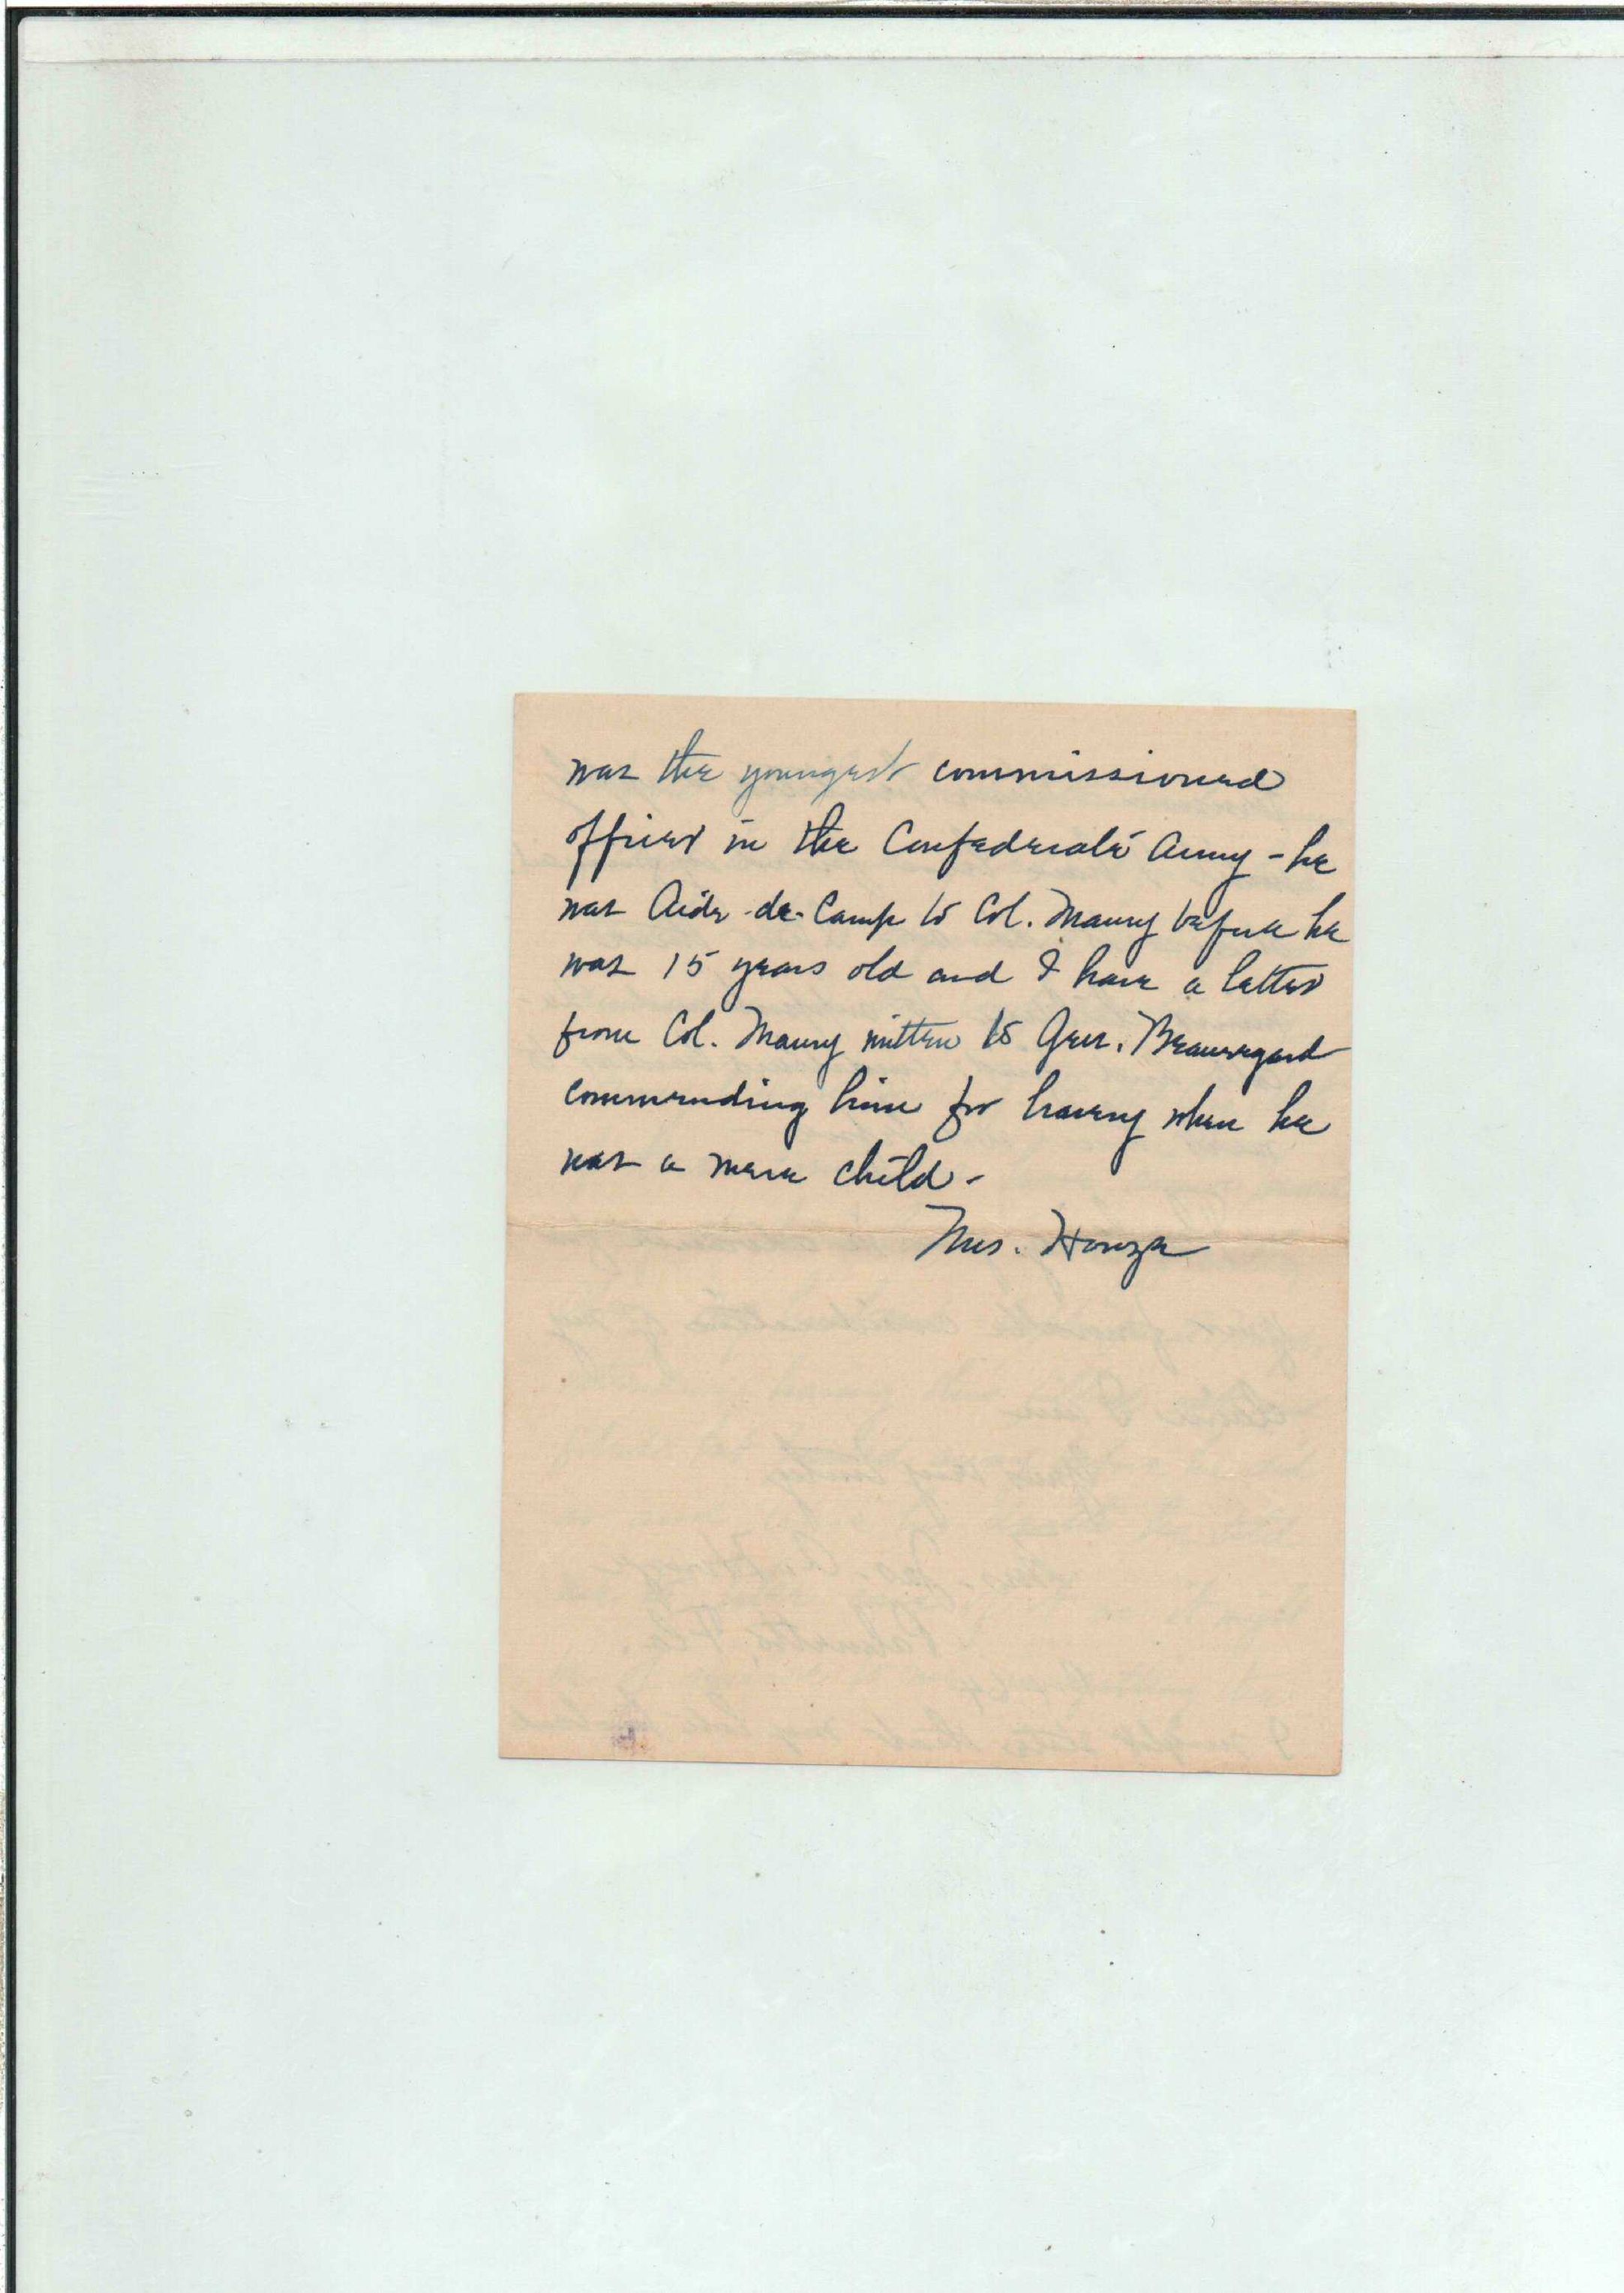 was the youngest commissioned
officer in the Confederate Army - he
was Aide-de-Camp to Col. Maury before he
was 15 years old and I have a letter
from Col. Maury written to Gen. Beauregard
commending him for bravery when he
was a mere child -
Mrs. Howze